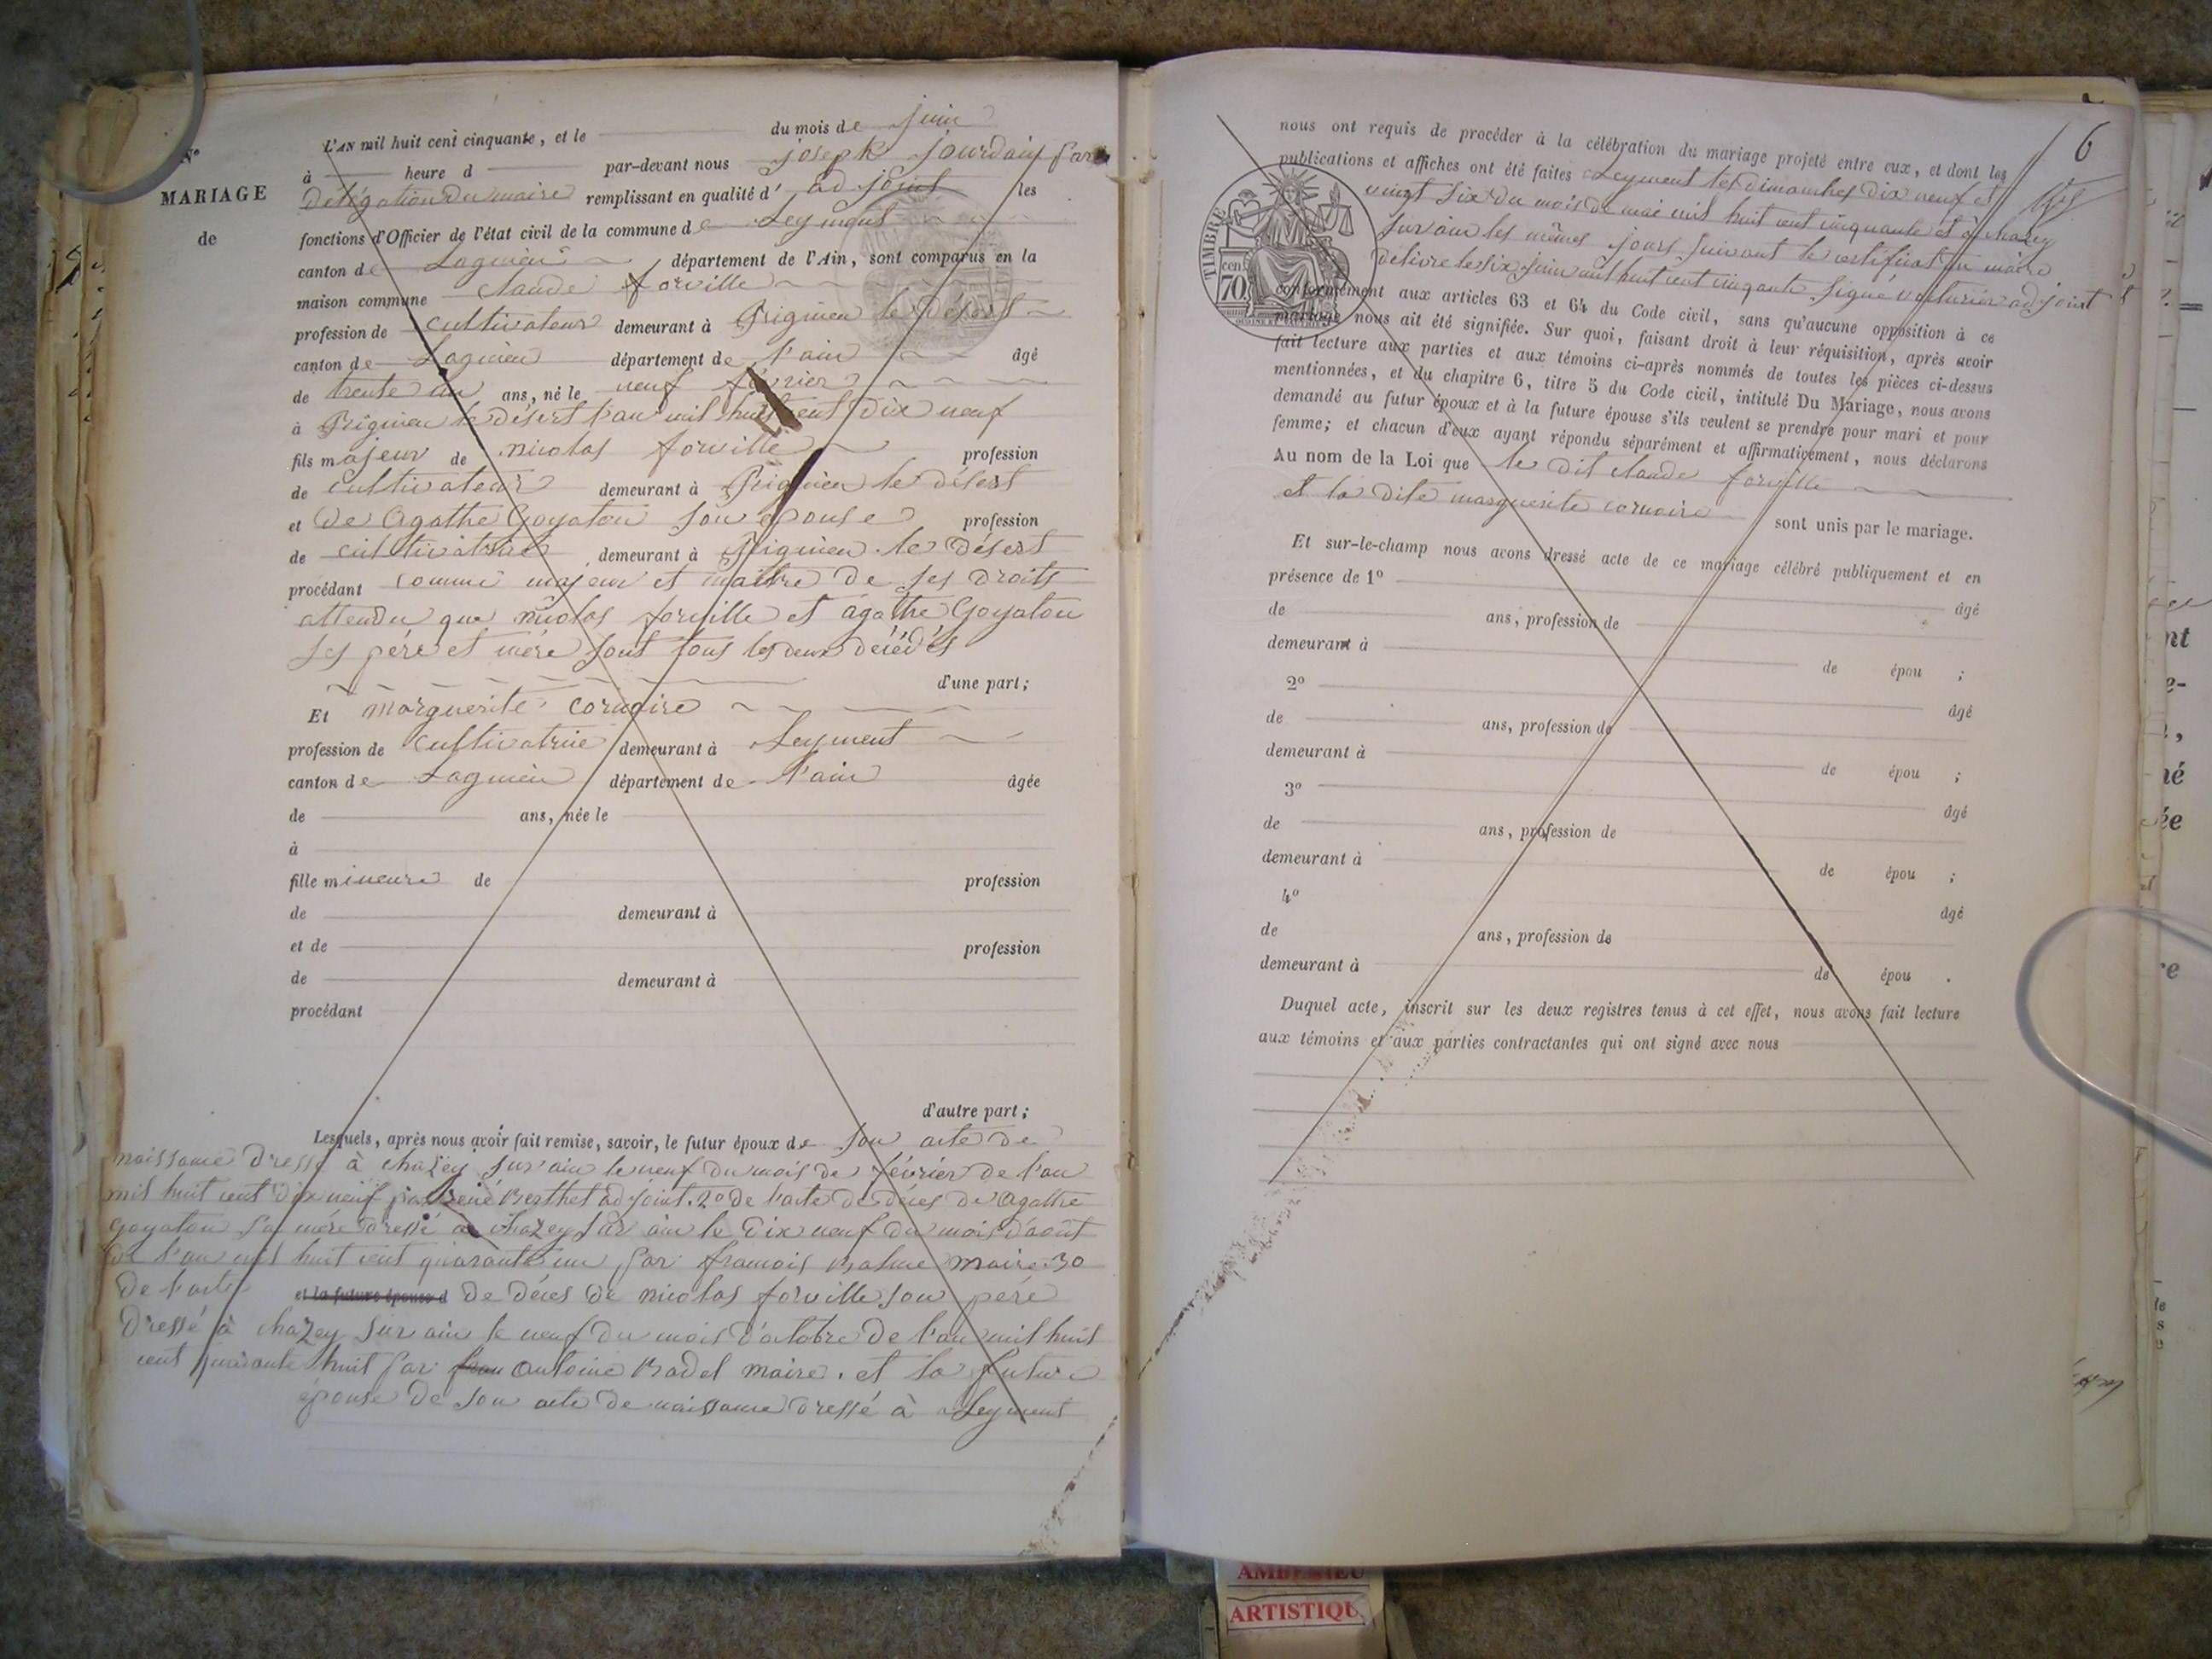 N°
MARIAGE
de
L'AN mil huit cent cinquante, et le du mois de juin
à heure d par-devant nous joseph jourdain par
délégation du maire remplissant en qualité d'adjoint les
fonctions d'Officier de l'état civil de la commune de Leyment
canton de Lagnieu département de l'Ain, sont comparus en la
maison commune claude forville
profession de cultivateur demeurant à Rignieu le désert
canton de Lagnieu département de l'ain âgé
de trente un ans, né le neuf février
à Rignieu le désert l'an mil huit cent dix neuf
fils majeur de nicolas forville profession
de cultivateur demeurant à Rignieu le désert
et de Agathe Goyaton son épouse profession
de cultivatrice demeurant à Rignieu le désert
procédant comme majeur et maître de ses droits
attendu que nicolas forville et agathe Goyaton
ses père et mère sont tous les deux décédés
d'une part;
Et marguerite cornaire
profession de cultivatrice demeurant à Leyment
canton de Lagnieu département de l'ain âgée
de ans, née le
à
fille mineure de profession
de demeurant à
et de profession
de demeurant à
procédant
d'autre part;
Lesquels, après nous avoir fait remise, savoir, le futur époux de son acte de
naissance dressé à chazey sur ain le neuf du mois de février de l'an
mil huit cent dix neuf par rené Berthet adjoint. 2° de l'acte de décès de Agathe
goyaton sa mère dressé à chazey sur ain le dix neuf du mois d'août
de l'an mil huit cent quarante un par francois Balme maire 3°
de l'acte et la future épouse d de décès de nicolas forville son père
dressé à chazey sur ain le neuf du mois d'octobre de l'an mil huit
cent quarante huit par fran antoine Badel maire. et la future
épouse de son acte de naissance dressé à Leyment
6
nous ont requis de procéder à la célébration du mariage projeté entre eux, et dont les
publications et affiches ont été faites a Leyment les dimanches dix neuf et
vingt six du mois de mai mil huit cent cinquante et à chazey
sur ain les mêmes jours suivant le certificat du maire
délivré le six juin mil huit cent cinquante signé voiturier adjoint
TIMBRE
70 cen.
conformément aux articles 63 et 64 du Code civil, sans qu'aucune opposition à ce
mariage nous ait été signifiée. Sur quoi, faisant droit à leur réquisition, après avoir
fait lecture aux parties et aux témoins ci-après nommés de toutes les pièces ci-dessus
mentionnées, et du chapitre 6, titre 5 du Code civil, intitulé Du Mariage, nous avons
demandé au futur époux et à la future épouse s'ils veulent se prendre pour mari et pour
femme; et chacun d'eux ayant répondu séparément et affirmativement, nous déclarons
Au nom de la Loi que le dit claude forville
et la dite marguerite cornaire sont unis par le mariage.
Et sur-le-champ nous avons dressé acte de ce mariage célébré publiquement et en
présence de 1° âgé
de ans, profession de
demeurant à de épou ;
2° âgé
de ans, profession de
demeurant à de épou ;
3° âgé
de ans, profession de
demeurant à de épou ;
4° âgé
de ans, profession de
demeurant à de épou .
Duquel acte, inscrit sur les deux registres tenus à cet effet, nous avons fait lecture
aux témoins et aux parties contractantes qui ont signé avec nous
AMBERIEU
ARTISTIQU